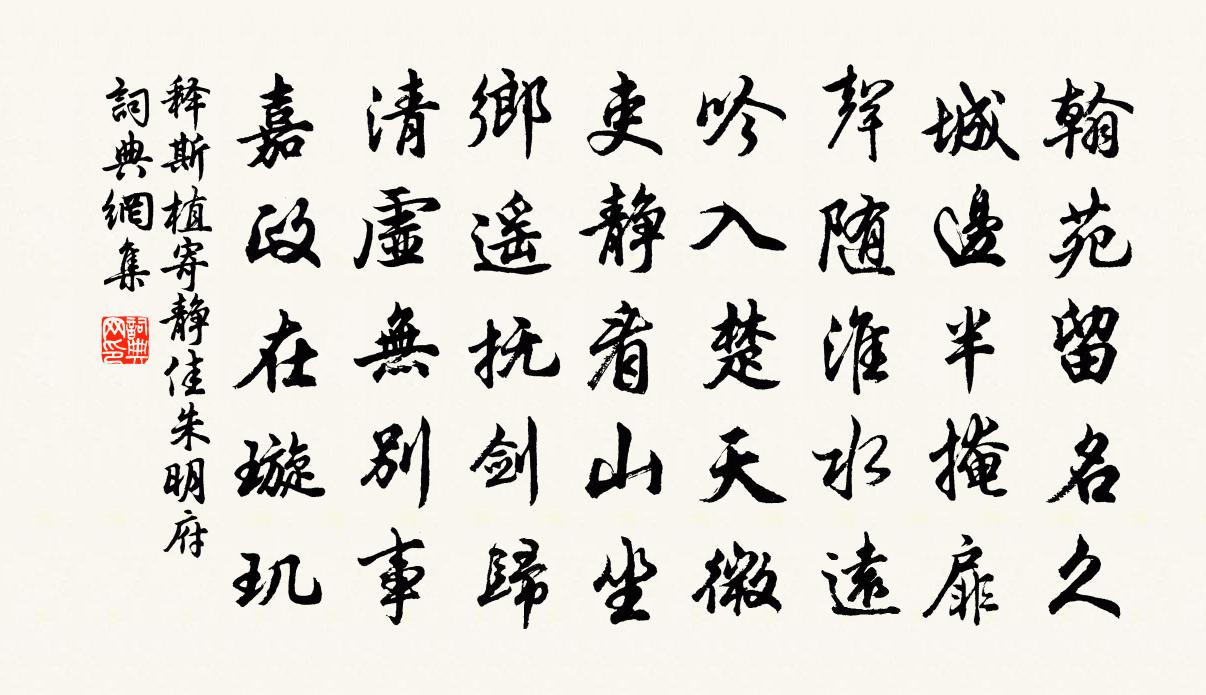 翰苑留名久
城邊半掩扉
聲随淮水遠
吟入楚天微
吏靜看山坐
鄉遥抚剑歸
清虛無别事
嘉政在璇玑
释斯植寄靜佳朱明府
詞典網集
詞典网印